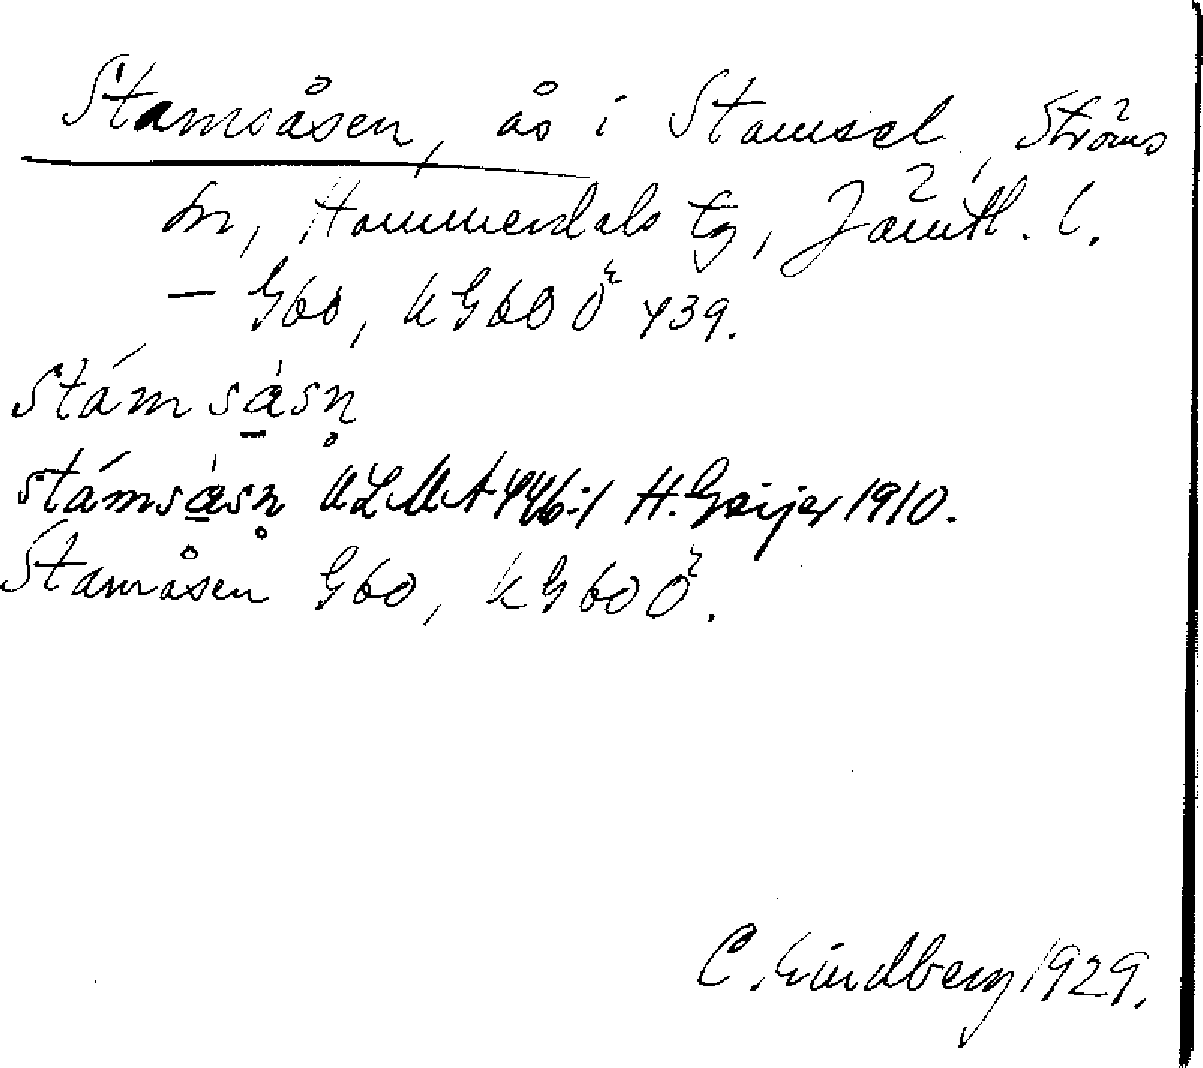 Stamsåsen, ås i Stamsel, Ströms
sn, Hammerdals tg, Jämtl. l.
— G60, kG60Ö 439.
stámsàsn̥
stámsàsn̥ ULMA 446:1 H. Geijer 1910.
Stamåsen G60, kG60Ö.
C. Lindberg 1929.